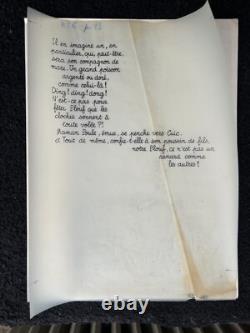 Il en imagine un, en
particulier, qui, peut-être,
sera son compagnon de
mare. Un grand poisson
argenté ou doré,
comme celui-là!
Ding! ding! dong!
N'est-ce pas pour
fêter Plouf que les
cloches sonnent à
toute volée ?!
Maman Poule, émue, se penche vers Cuic.
« Tout de même, confie-t-elle à son poussin de fils,
notre Plouf, ce n'est pas un
canard comme
les autres!
ebay